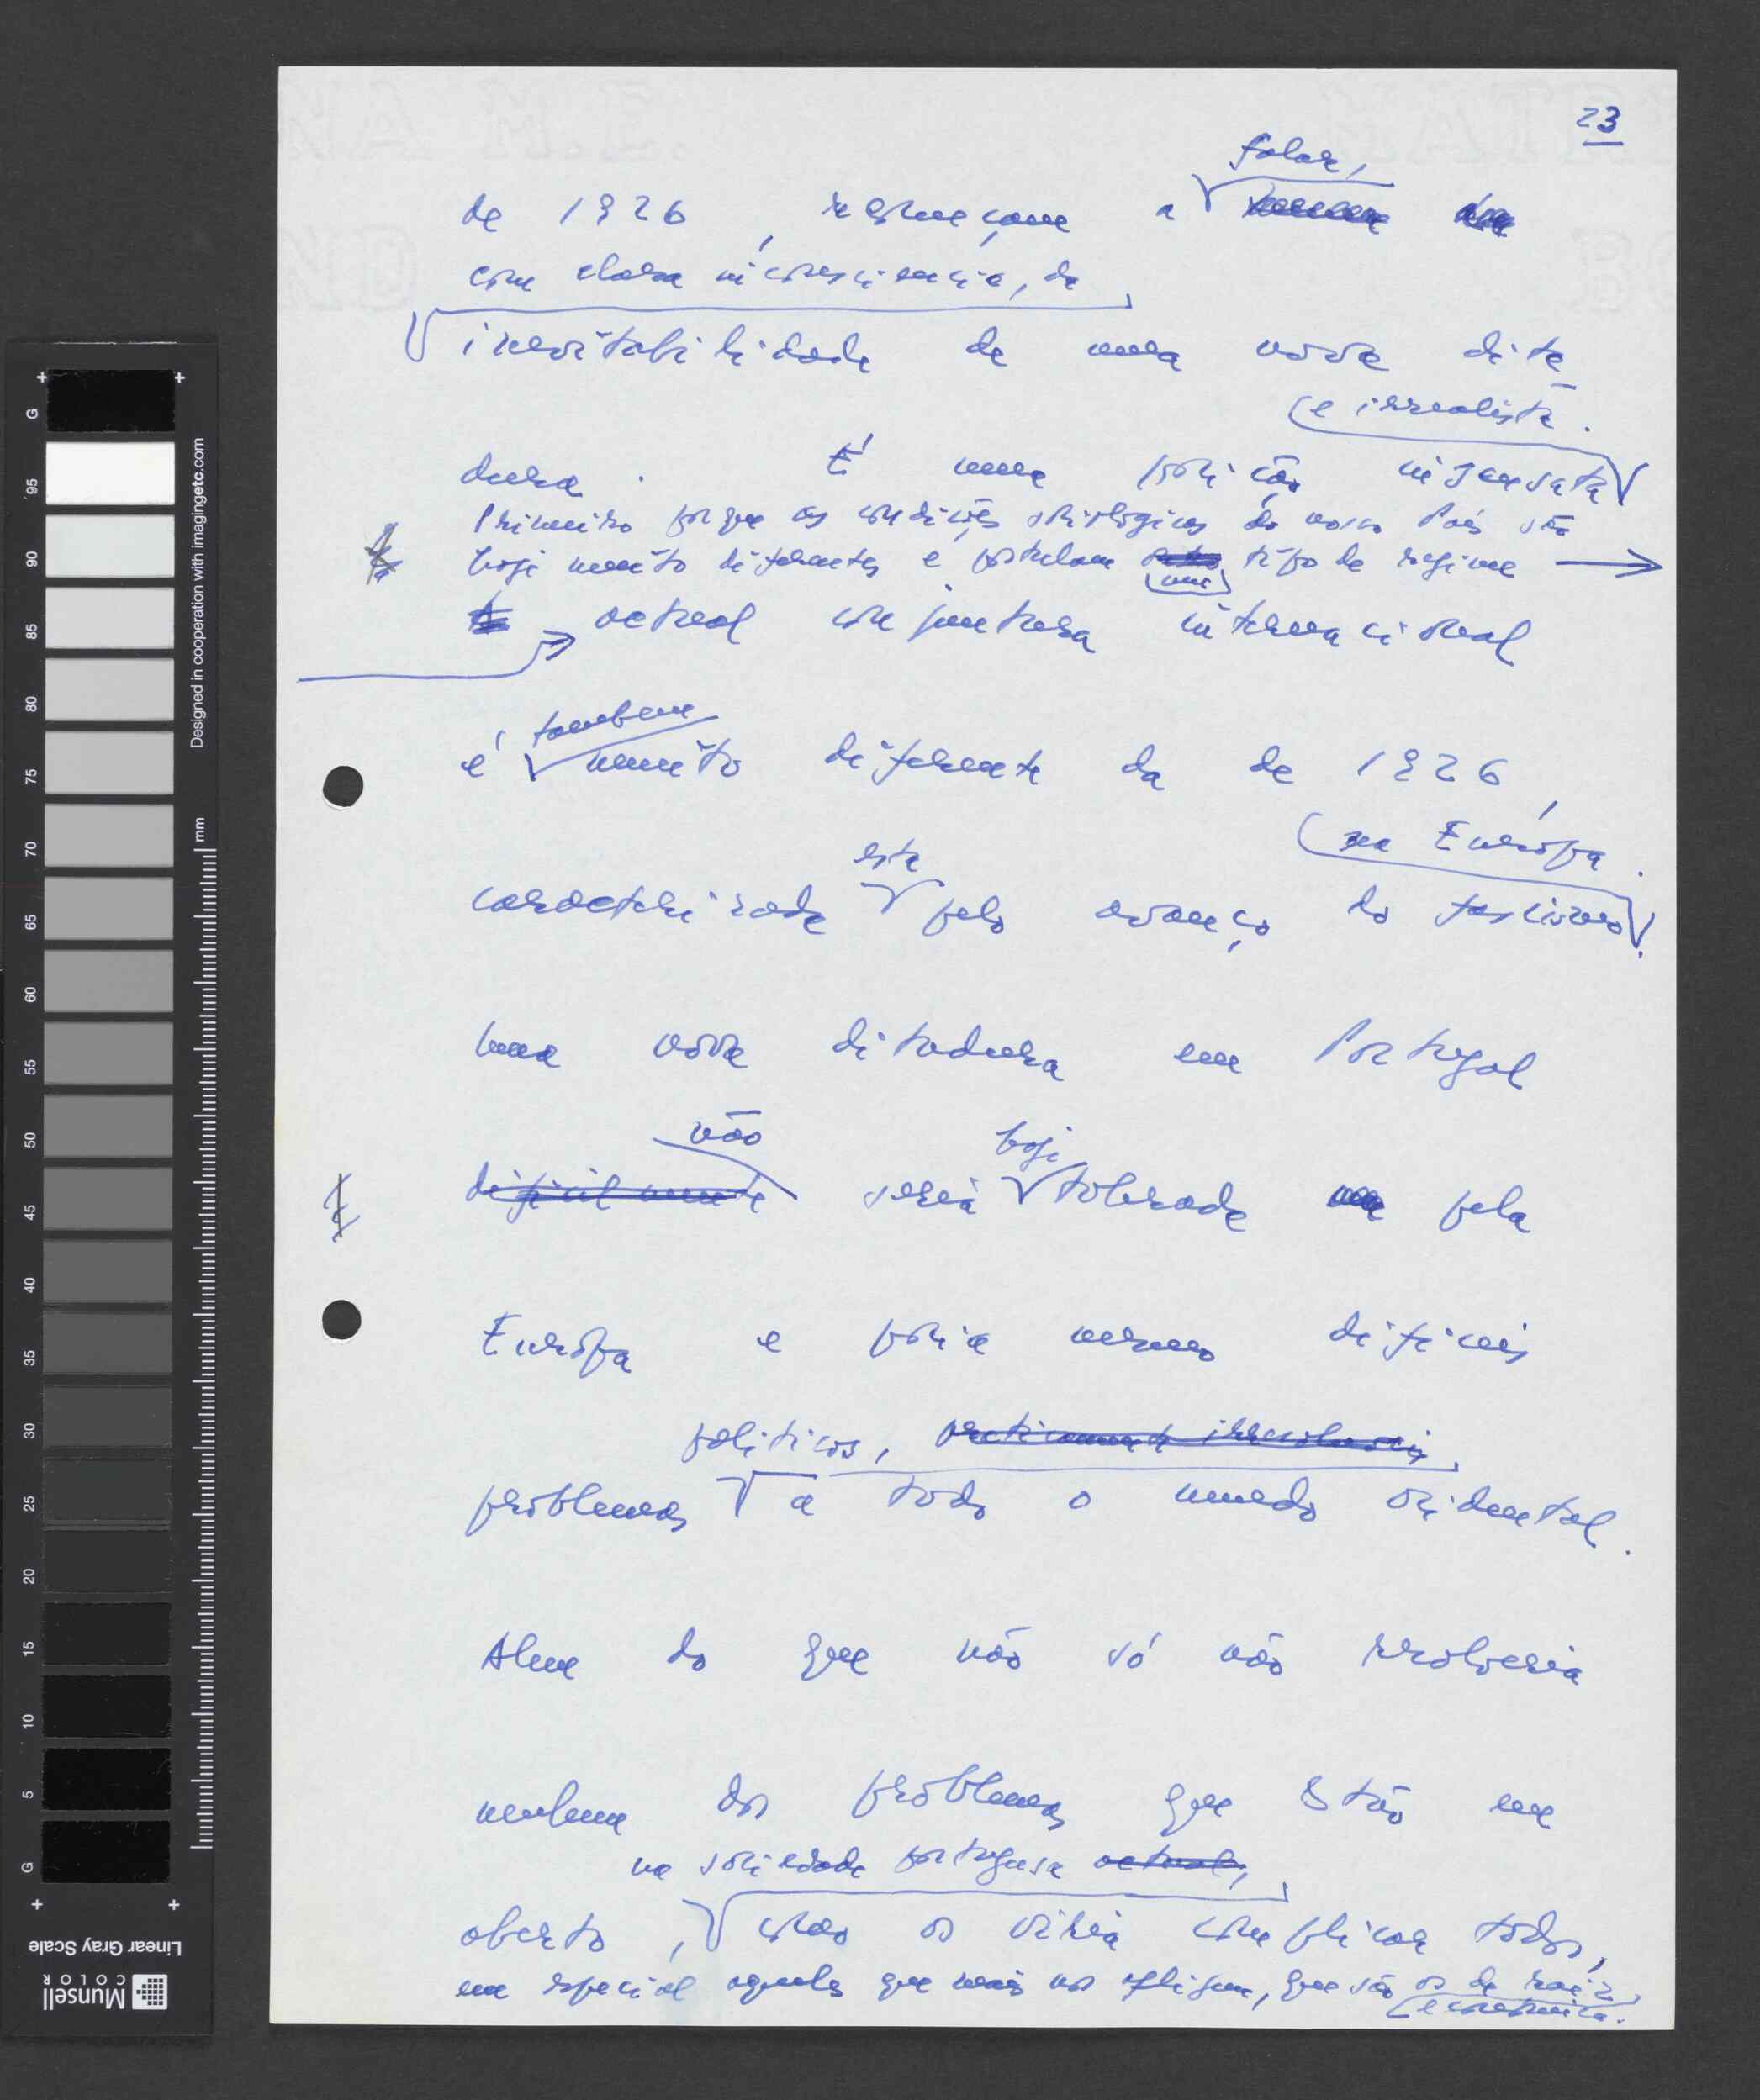 23
falar,
de 1926, recomeçam a
com clara inconsciência, da
inevitabilidade de uma nova dita-
e irrealista.
dura. É uma posição insensata
Primeiro porque as condições sociológicas do nosso País são
hoje muito diferentes e postulam outro tipo de regime
um
A actual conjuntura internacional
também
é muito diferente da de 1926,
na Europa.
esta
caracterizada pelo avanço do fascismo.
Uma nova ditadura em Portugal
não hoje
dificilmente seria tolerada na pela
Europa e poria mesmo difíceis
políticos, praticamente irresolúveis,
problemas a todo o mundo ocidental.
Alem do que não só não resolveria
nenhum dos problemas que estão em
na sociedade portuguesa actual,
aberto, como os viria complicar todos,
em especial aqueles que mais nos afligem, que são os de raiz
económica.
Designed in cooperation with imagingetc.com
mm
+ +
G
95
90
85
80
75
70
65
60
55
50
45
40
35
30
25
20
15
10
5
G
+ +
Linear Gray Scale
Munsell
COLOR